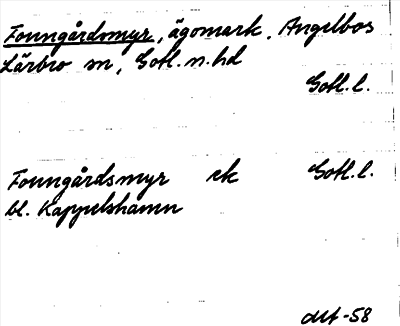 Fonngårdsmyr, ägomark, Angelbos
Lärbro sn, Gotl. n. hd
Gotl. l.
Fonngårdsmyr ek Gotl. l.
bl. Kappelshamn